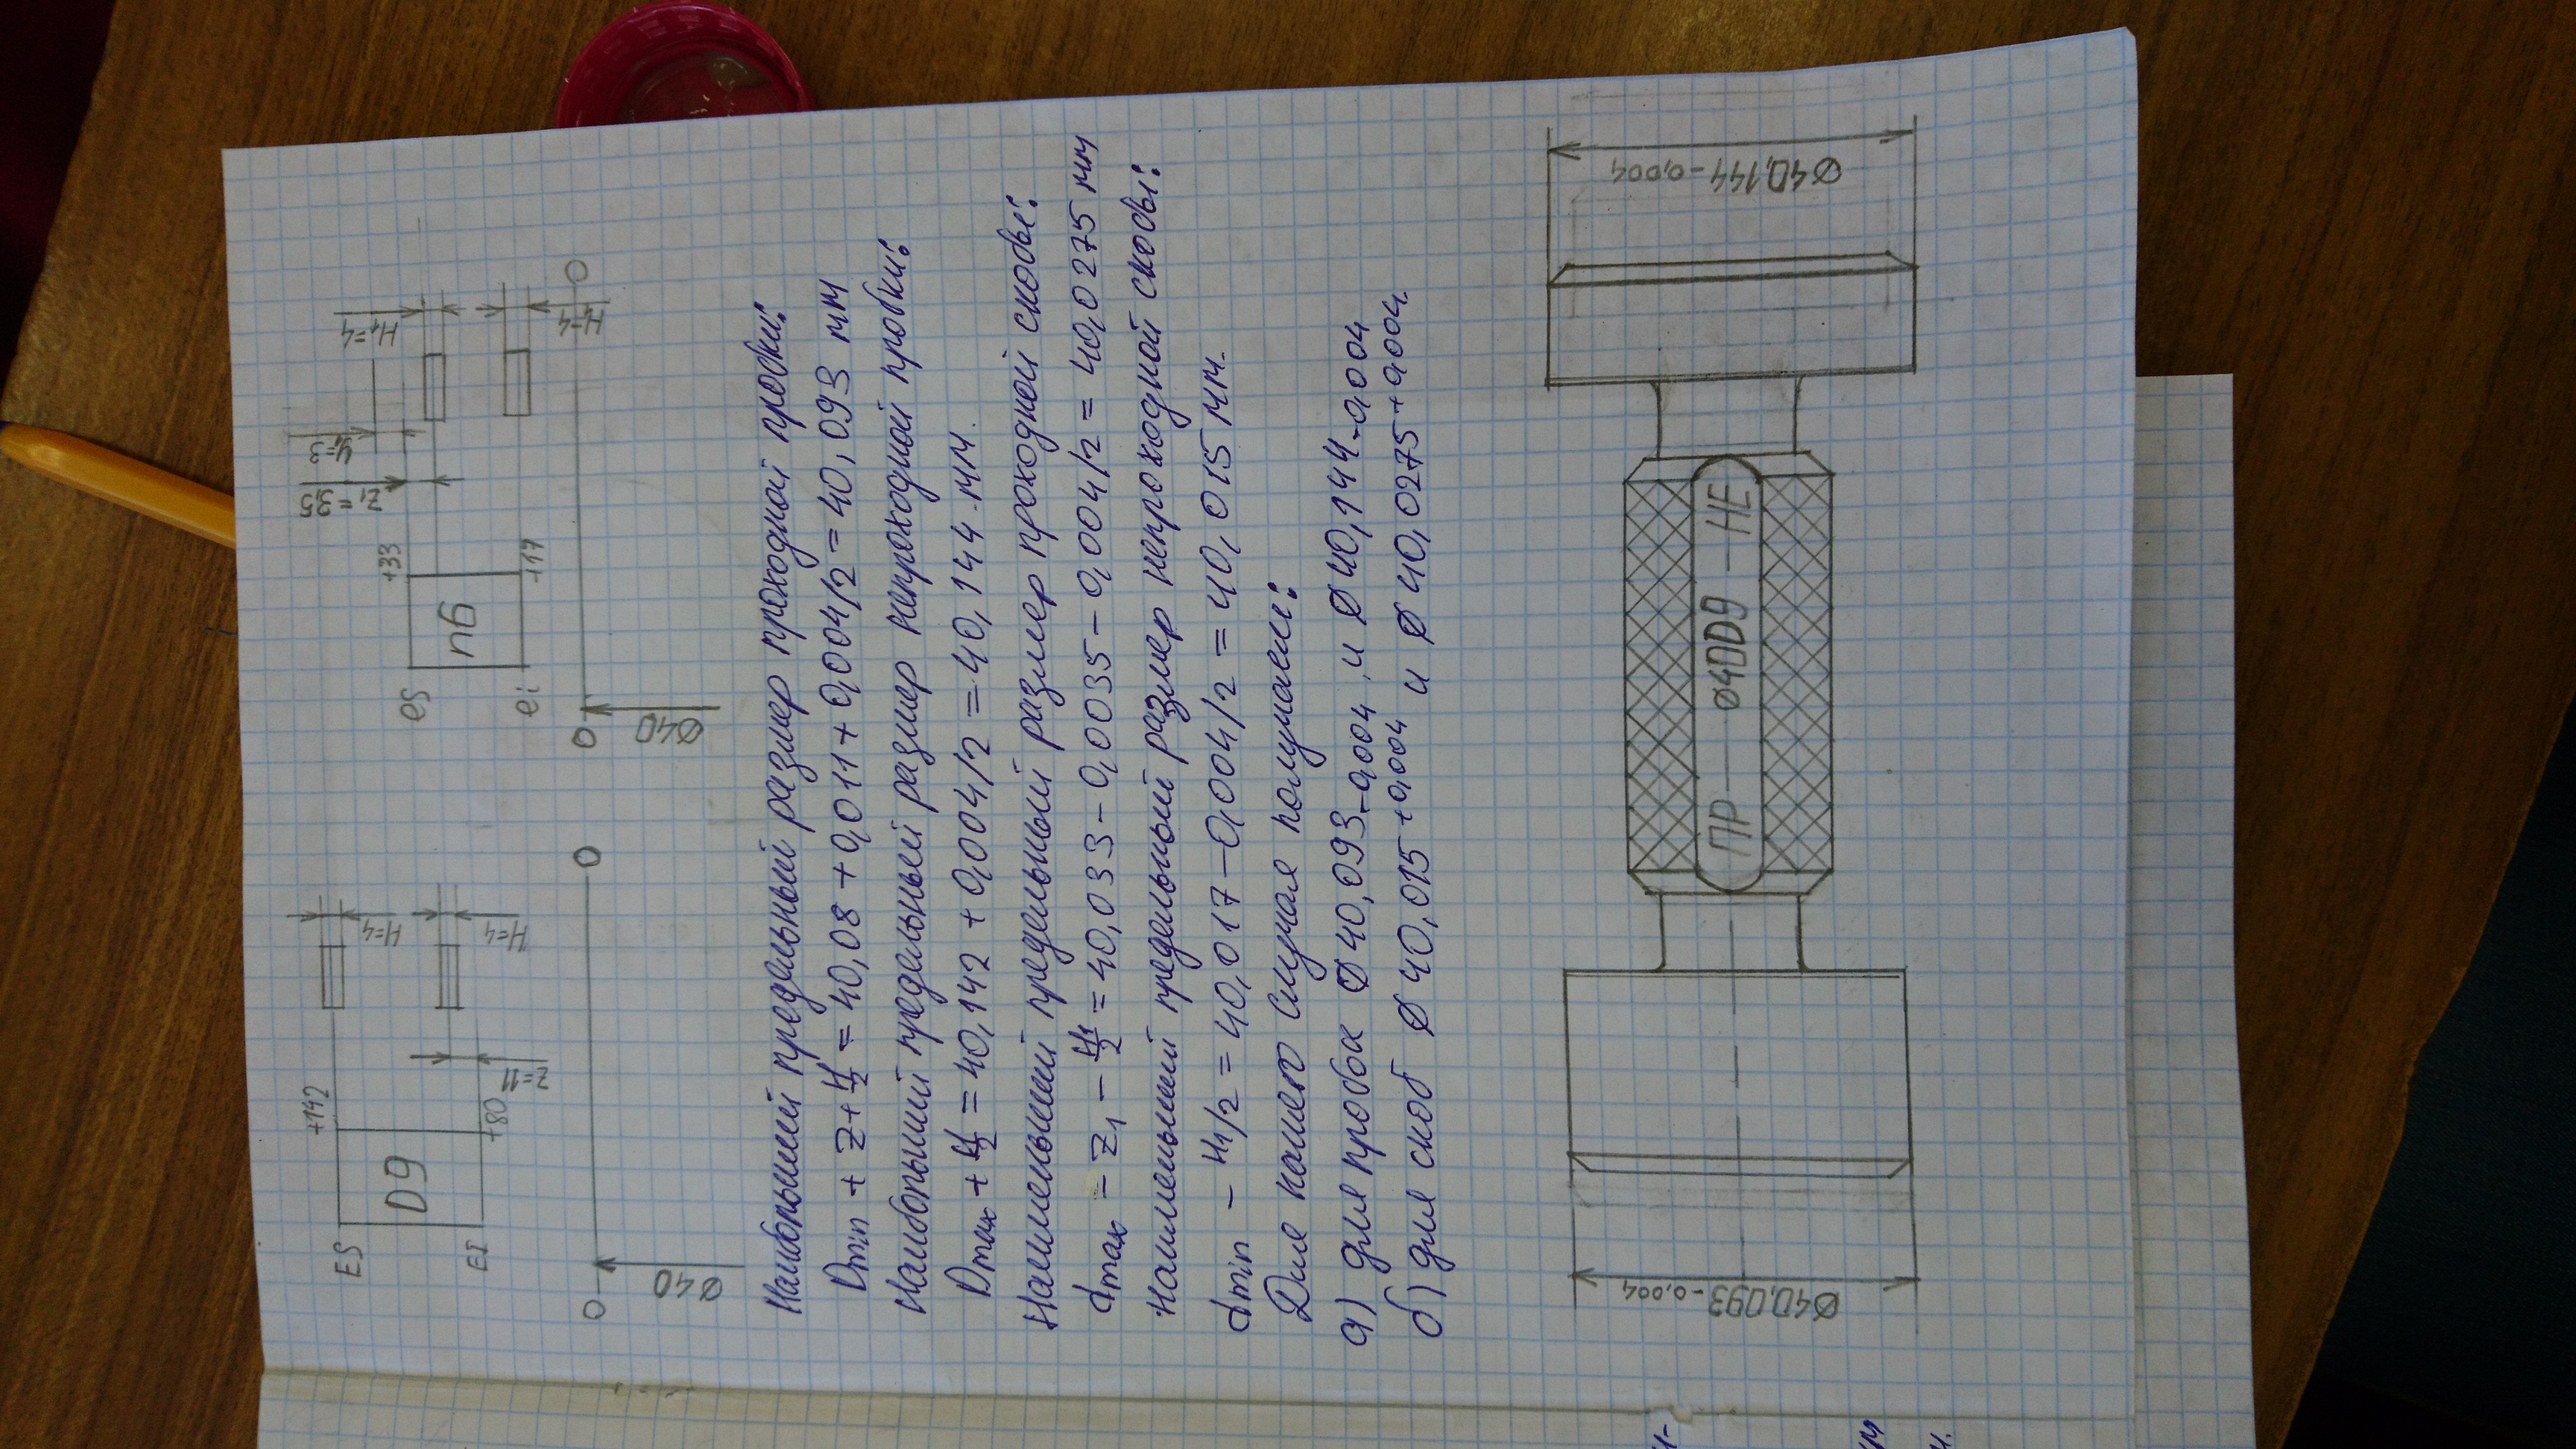 ES
+142
D9
EI
+80
z=11
H=4
H=4
0
0
ø40
es
+33
n6
ei
+17
z₁=3,5
y₁=3
H₁=4
H₁=4
0
0
ø40
Наибольший предельный размер проходной пробки:
Dmin + z + H/2 = 40,08 + 0,011 + 0,004/2 = 40,093 мм
Наибольший предельный размер непроходной пробки:
Dmax + H/2 = 40,142 + 0,004/2 = 40,144 мм.
Наименьший предельный размер проходной скобы:
dmax - z₁ - H₁/2 = 40,033 - 0,0035 - 0,004/2 = 40,0275 мм
Наименьший предельный размер непроходной скобы:
dmin - H₁/2 = 40,017 - 0,004/2 = 40,015 мм.
Для нашего случая получаем:
а) для пробок ø40,093-0,004 и ø40,144-0,004
б) для скоб ø40,015+0,004 и ø40,0275+0,004.
ø40,093-0,004
ПР — ø40D9 — НЕ
ø40,144-0,004